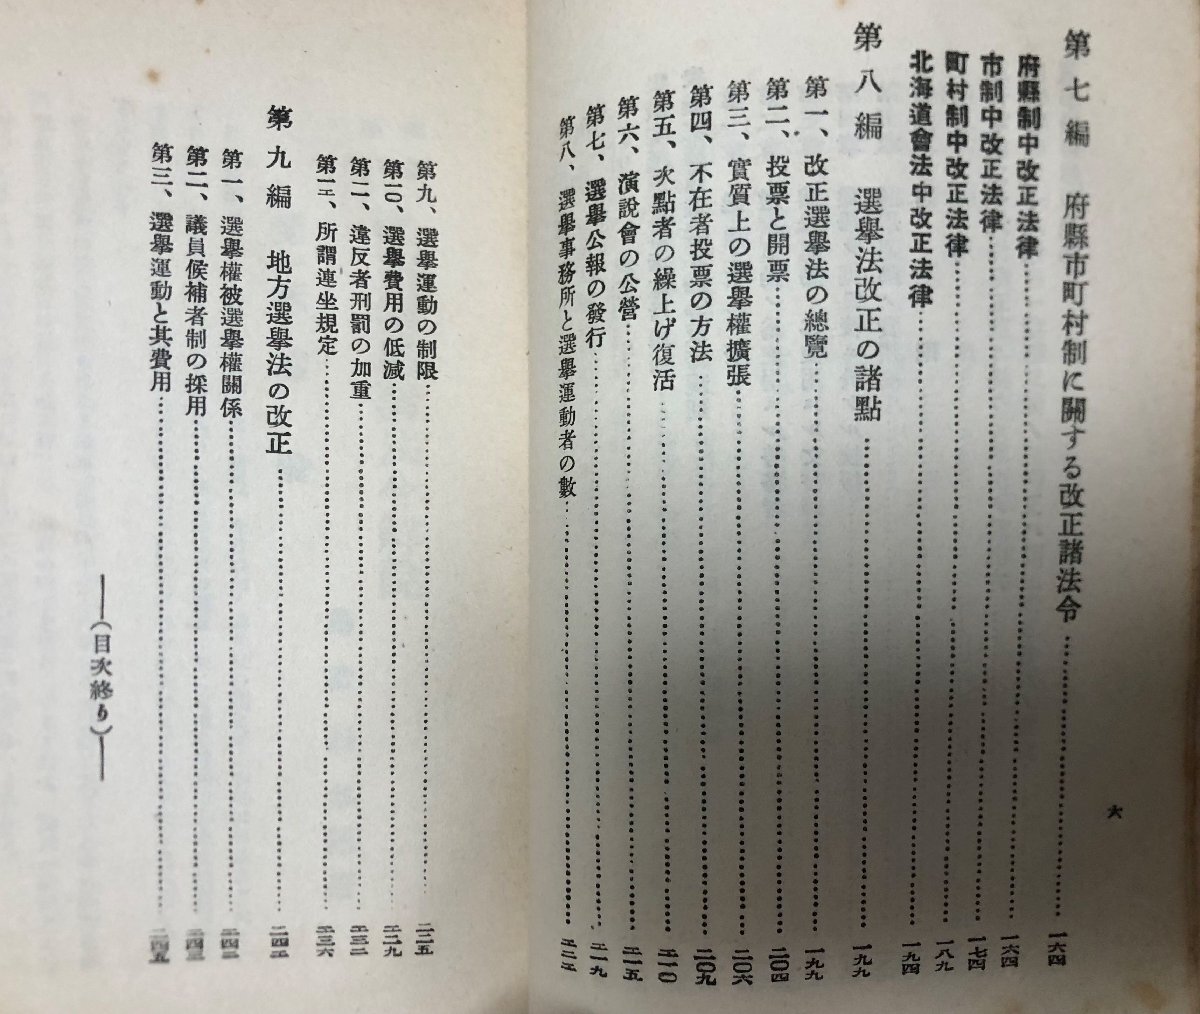 六
第七編　府縣市町村制に關する改正諸法令……一六四
府縣制中改正法律……一六四
市制中改正法律……一七四
町村制中改正法律……一八九
北海道會法中改正法律……一九四
第八編　選擧法改正の諸點……一九九
第一、改正選擧法の總覽……一九九
第二、投票と開票……二〇四
第三、實質上の選擧權擴張……二〇六
第四、不在者投票の方法……二〇九
第五、次點者の繰上げ復活……二一〇
第六、演說會の公營……二一五
第七、選擧公報の發行……二一九
第八、選擧事務所と選擧運動者の數……二二二
第九、選擧運動の制限……二二五
第一〇、選擧費用の低減……二二九
第一一、違反者刑罰の加重……二三二
第一二、所謂連坐規定……二三六
第九編　地方選擧法の改正……二四二
第一、選擧權被選擧權關係……二四二
第二、議員候補者制の採用……二四三
第三、選擧運動と其費用……二四五
――（目次終り）――